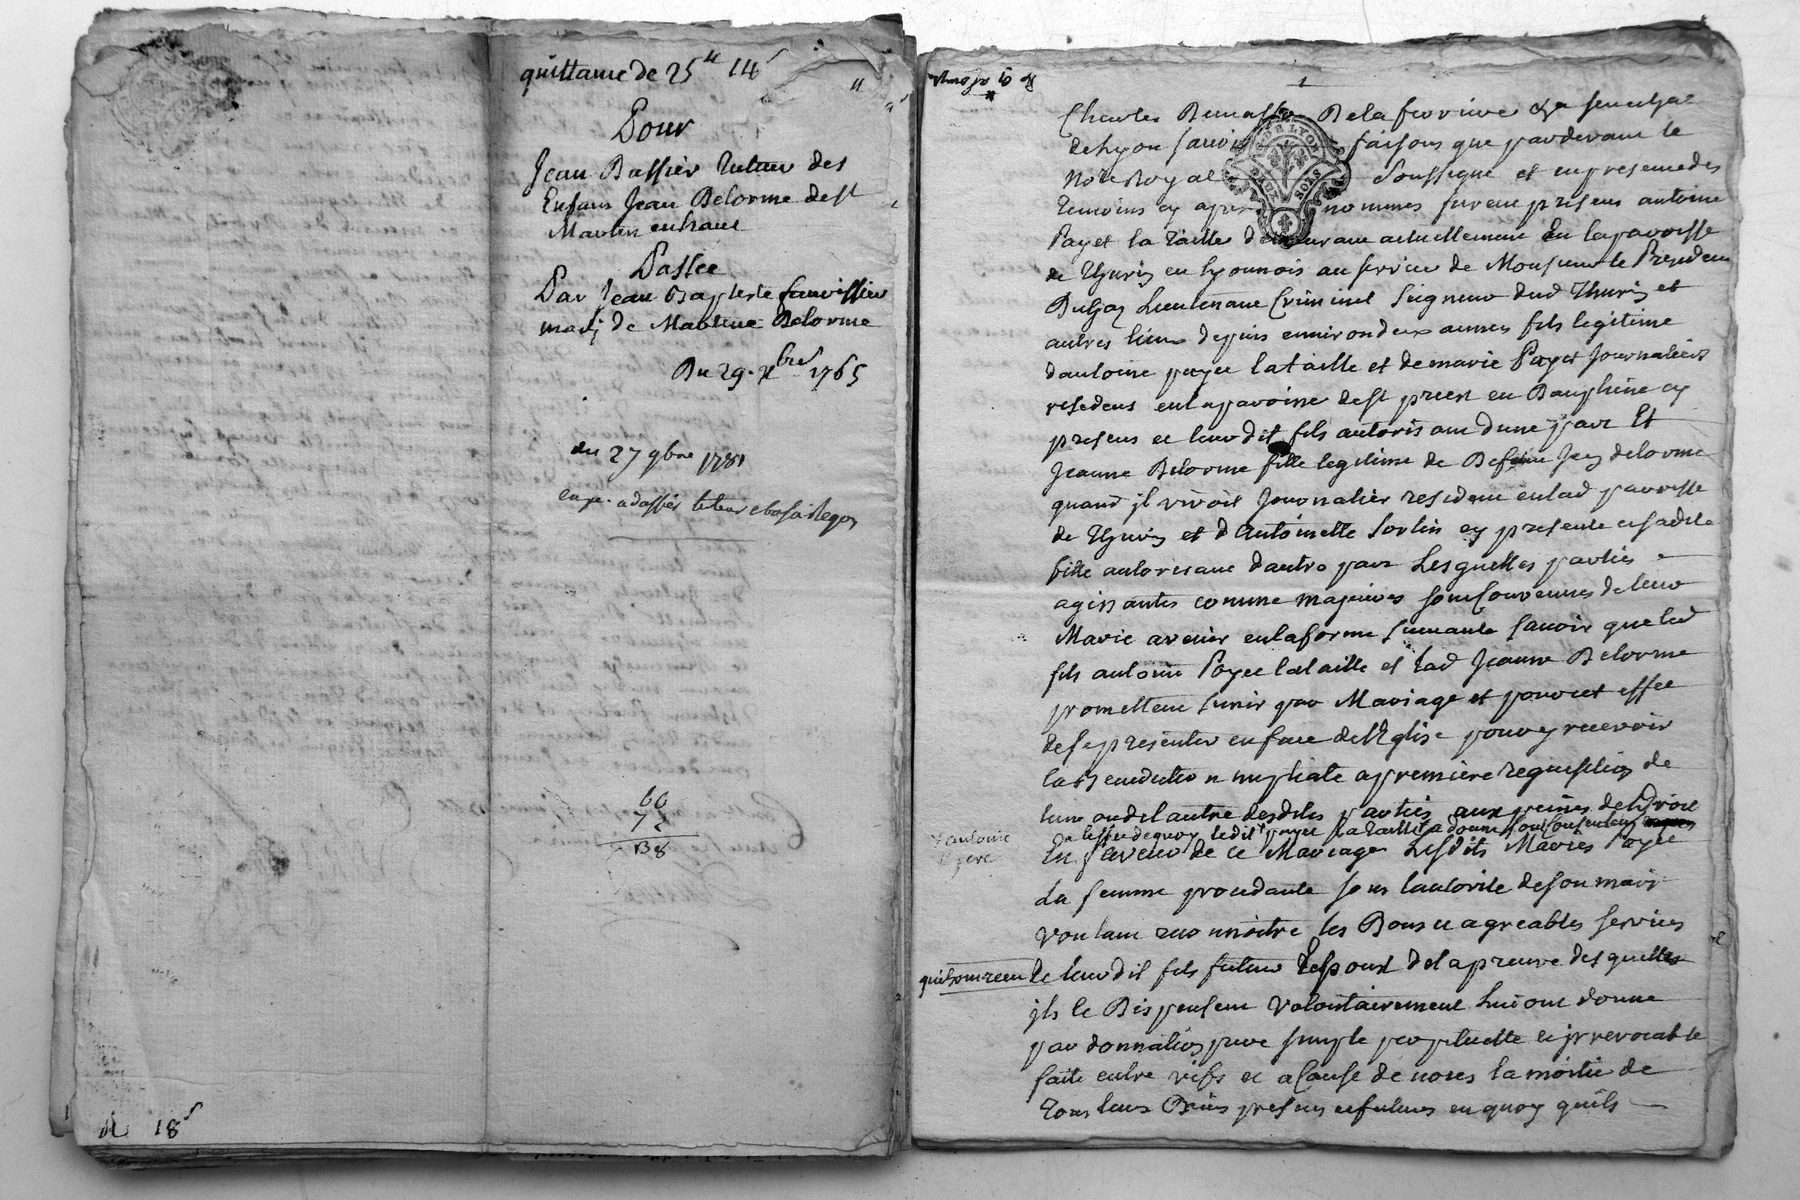 quittance de 25ᵗᵗ 14ˢ
Pour
Jean Bassier tuteur des
Enfans Jean Delorme de St
Martin enhaut
Passée
Par Jean Baptiste fauvissieu
marj de Mathieue Delorme
Du 29. xbre 1765
du 27 9bre 1781
60
78
138
18ˢ
1
Charles De la ferriere &a senechal
de Lyon savoir faisons que pardevant le
Notre Royal soussigné et en presence des
temoins cy apres nommes furent presens antoine
Payet la taille demeurant actuellement en la paroisse
de Thurin en lyonnois au service de Monsieur le President
Dugas Lieutenant Criminel Seigneur dud Thurin et
autres lieux depuis environ deux annees fils legitime
dantoine payet lataille et de marie Payet Journaliers
residens en la paroisse de st priest en Dauphine cy
presens et leurdit fils autorisant dune part Et
Jeanne Delorme fille legitime de Defunt Jean delorme
quand il vivoit Journalier resident en lad paroisse
de Thurin et d'Antoinette Sorlin cy presente et sadite
fille autorisant dautre part Lesquelles parties
agissantes comme majeures sont convenues de leur
Marie avenir en la forme suivante savoir que led
fils antoine Payet lataille et lad Jeanne Delorme
promettent sunir par Mariage et pour cet effet
de se presenter en face de l'Eglise pour y recevoir
la Benediction nuptiale a premiere requisition de
lune ou de lautre desdites parties aux peines de Droit
a leffet de quoy ledit payet la taille a donné son consentement
antoine
pere
En faveur de ce Mariage Lesdits Maries Payet
La femme procedante sous lautorite de son mary
voulant reconnoitre les Bons et agreables services
quils ont recu de leurdit fils futur Lespoux de la preuve desquelles
ils le Dispensent volontairement Lui ont donné
par donnation pure simple perpetuelle et irrevocable
faite entre vifs et a Cause de noces la moitie de
tous leurs Biens presens et futurs en quoy quils